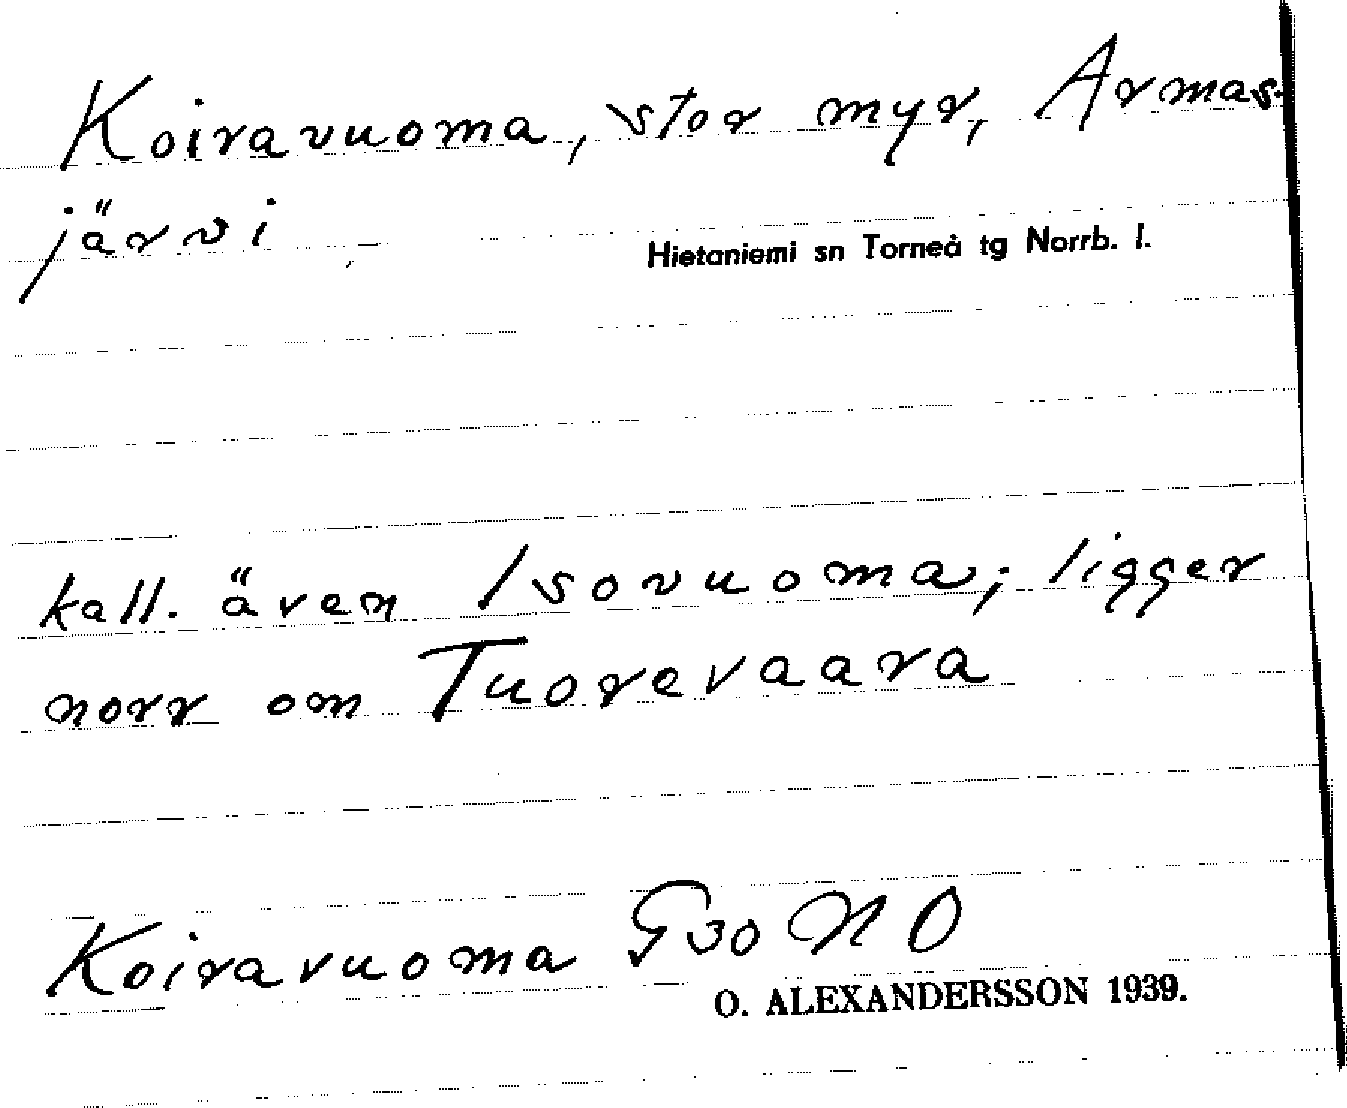 Koiravuoma, stor myr, Armas-
järvi
Hietaniemi sn Torneå tg Norrb. l.
kall. även Isovuoma; ligger
norr om Tuorevaara
Koiravuoma G30 NO
O. ALEXANDERSSON 1939.